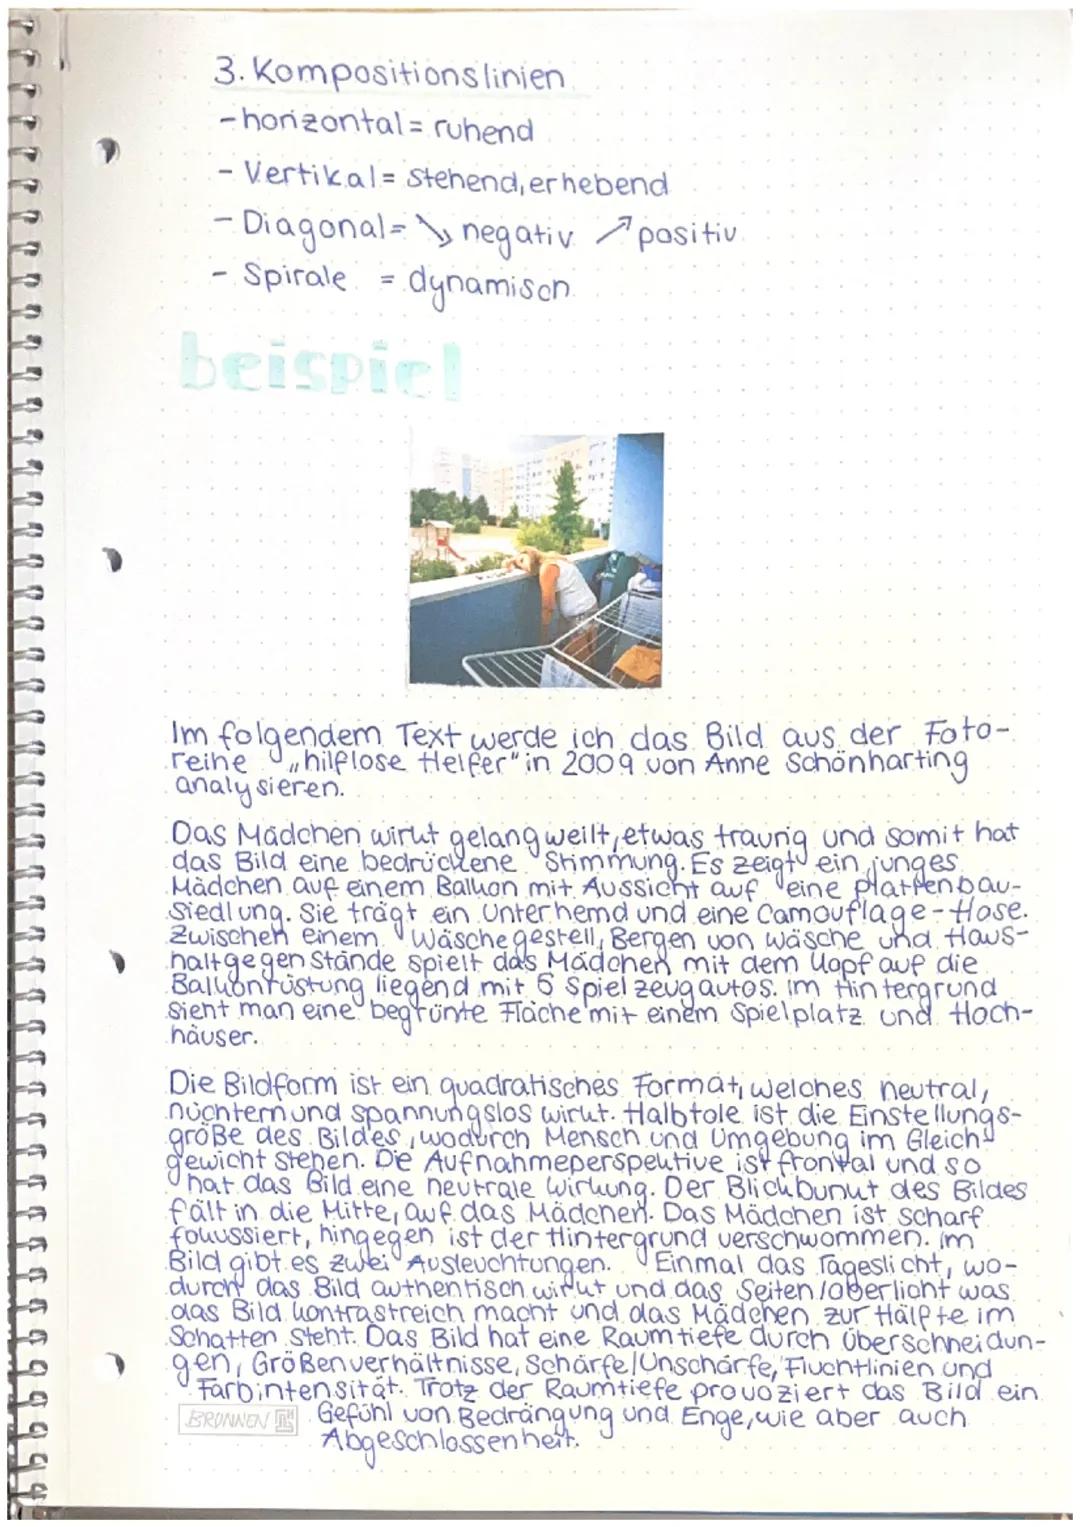 3. Kompositionslinien
- horizontal = ruhend
- Vertikal = stehend, erhebend
- Diagonal = ↘ negativ ↗ positiv
- Spirale = dynamisch
beispiel
Im folgendem Text werde ich das Bild aus der Foto-
reihe „hilflose Helfer" in 2009 von Anne Schönharting
analysieren.
Das Mädchen wirkt gelangweilt, etwas traurig und somit hat
das Bild eine bedrückene Stimmung. Es zeigt ein junges
Mädchen auf einem Balkon mit Aussicht auf eine plattenbau-
siedlung. Sie trägt ein Unterhemd und eine Camouflage-Hose.
Zwischen einem Wäschegestell, Bergen von wäsche und Haus-
haltgegenstände spielt das Mädchen mit dem Kopf auf die
Balkonrüstung liegend mit 6 Spielzeugautos. im Hintergrund
sieht man eine begrünte Fläche mit einem Spielplatz und Hoch-
häuser.
Die Bildform ist ein quadratisches Format, welches neutral,
nüchtern und spannungslos wirkt. Halbtole ist die Einstellungs-
größe des Bildes, wodurch Mensch und Umgebung im Gleich
gewicht stehen. Die Aufnahmeperspektive ist frontal und so
hat das Bild eine neutrale Wirkung. Der Blickpunkt des Bildes
fält in die Mitte, auf das Mädchen. Das Mädchen ist scharf
fokussiert, hingegen ist der Hintergrund verschwommen. im
Bild gibt es zwei Ausleuchtungen. Einmal das Tageslicht, wo-
durch das Bild authentisch wirkt und das Seiten/oberlicht was
das Bild kontrastreich macht und das Mädchen zur Hälfte im
Schatten steht. Das Bild hat eine Raumtiefe durch Überschneidun-
gen, Größenverhältnisse, Schärfe/Unschärfe, Fluchtlinien und
Farbintensität. Trotz der Raumtiefe provoziert das Bild ein
BRUNNEN Gefühl von Bedrängung und Enge, wie aber auch
Abgeschlossenheit.